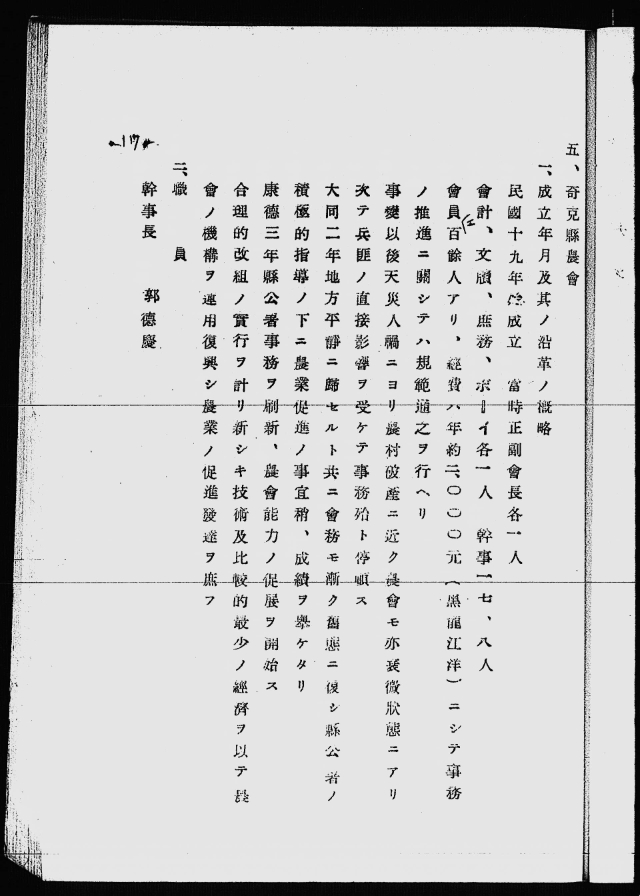 五、奇克縣農會
一、成立年月及其ノ沿革ノ概略
民國十九年 成立 當時正副會長各一人
會計、文牘、庶務、ボーイ各一人 幹事一七、八人
會員百餘人アリ、經費ハ年約二、〇〇〇元(黑龍江洋)ニシテ事務
ノ推進ニ關シテハ規範通之ヲ行ヘリ
事變以後天災人禍ニヨリ農村破產ニ近ク農會モ亦衰微狀態ニアリ
次テ兵匪ノ直接影響ヲ受ケテ事務殆ト停頓ス
大同二年地方平靜ニ歸セルト共ニ會務モ漸ク舊態ニ復シ縣公署ノ
積極的指導ノ下ニ農業促進ノ事宜稍、成績ヲ擧ケタリ
康德三年縣公署事務ヲ刷新、農會能力ノ促展ヲ開始ス
合理的改組ノ實行ヲ計リ新シキ技術及比較的最少ノ經濟ヲ以テ農
會ノ機構ヲ運用復興シ農業ノ促進發達ヲ庶フ
二、職員
幹事長 郭德慶
17